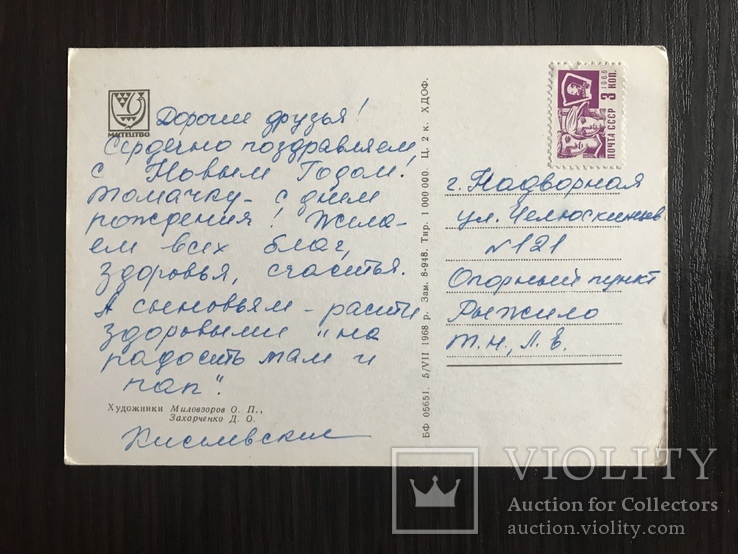 МИСТЕЦТВО
Дорогие друзья!
Сердечно поздравляем
с Новым Годом!
Томачку - с днем
рождения! Жела-
ем всех благ,
здоровья, счастья.
А сыновьям - расти
здоровыми "на
радость мам и
пап".
Художники Миловзоров О. П.,
Захарченко Д. О.
Кисилевские
БФ 05651. 5/VII 1968 р. Зам. 8-948. Тир. 1 000 000. Ц. 2 к. ХДОФ.
1966
3 КОП.
ПОЧТА СССР
г. Надворная
ул. Челюскинцев
N 121
Опорный пункт
Рыжило
Т.Н., Л.В.
VIOLITY
Auction for Collectors
auction.violity.com